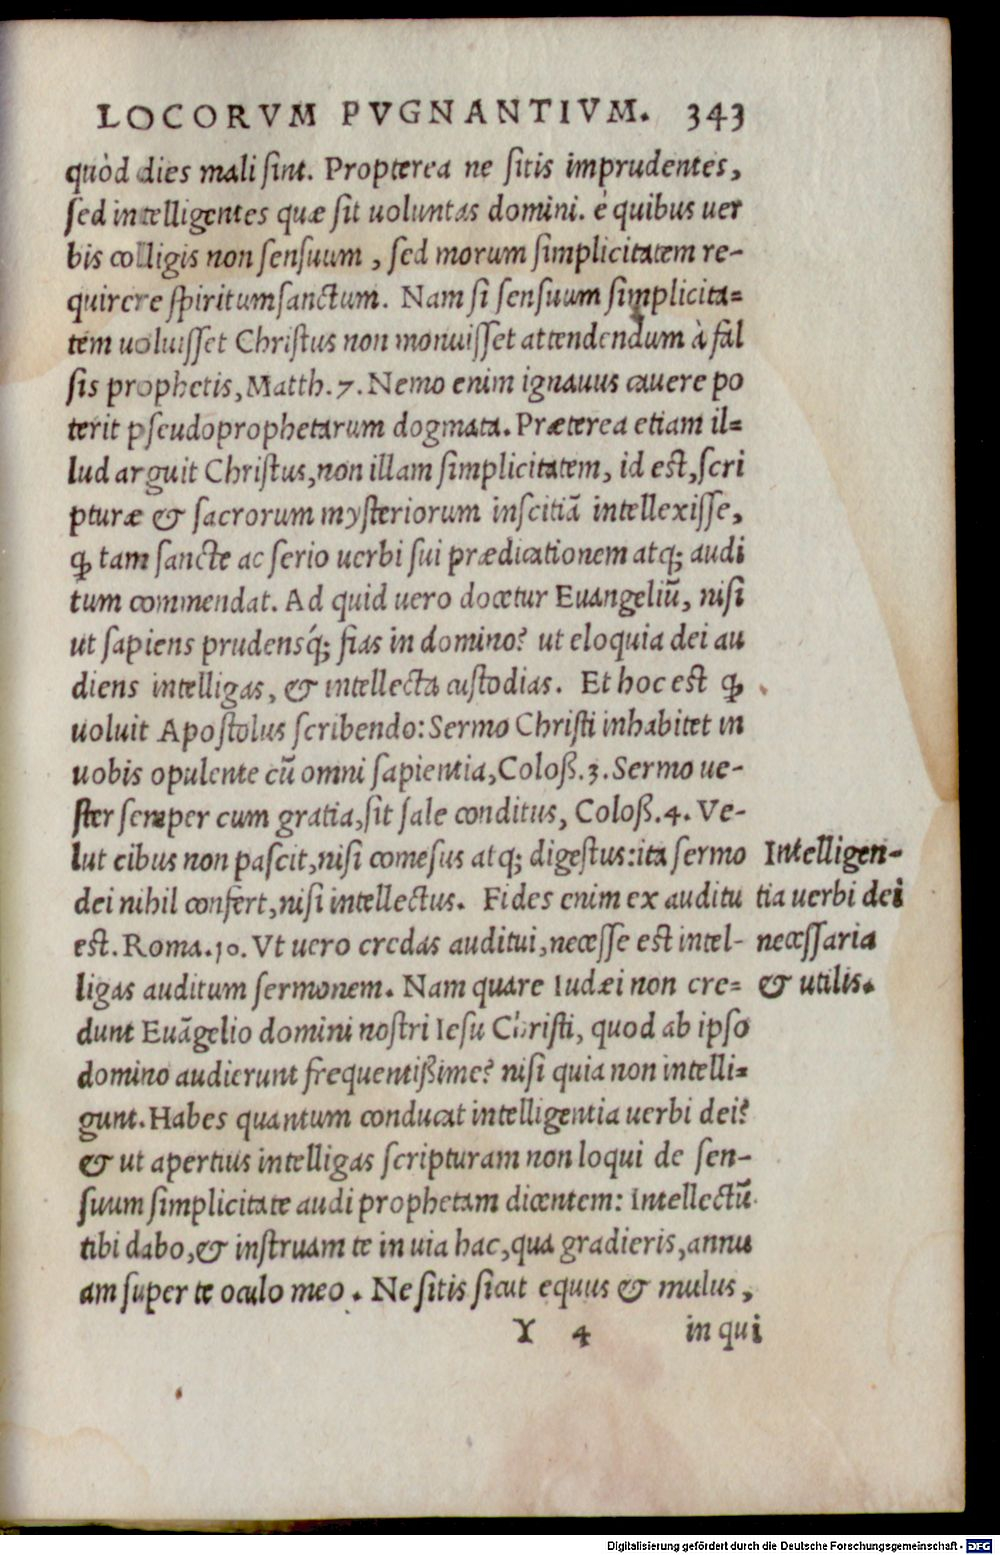 LOCORVM PVGNANTIVM. 343
quòd dies mali sint. Propterea ne sitis imprudentes,
sed intelligentes quæ sit uoluntas domini. è quibus uer
bis colligis non sensuum, sed morum simplicitatem re-
quirere spiritumsanctum. Nam si sensuum simplicita=
tem uoluisset Christus non monuisset attendendum à fal
sis prophetis, Matth. 7. Nemo enim ignauus cauere po
terit pseudoprophetarum dogmata. Præterea etiam il=
lud arguit Christus, non illam simplicitatem, id est, scri
pturæ & sacrorum mysteriorum inscitiā intellexisse,
ꝙ tam sancte ac serio uerbi sui prædicationem atq; audi
tum commendat. Ad quid uero docetur Euangeliū, nisi
ut sapiens prudensq́; fias in domino? ut eloquia dei au
diens intelligas, & intellecta custodias. Et hoc est ꝙ
uoluit Apostolus scribendo: Sermo Christi inhabitet in
uobis opulente cū omni sapientia, Coloß. 3. Sermo ue-
ster semper cum gratia, sit sale conditus, Coloß. 4. Ve-
lut cibus non pascit, nisi comesus atq; digestus: ita sermo
dei nihil confert, nisi intellectus. Fides enim ex auditu
est. Roma. 10. Vt uero credas auditui, necesse est intel-
ligas auditum sermonem. Nam quare Iudæi non cre=
dunt Euāgelio domini nostri Iesu Christi, quod ab ipso
domino audierunt frequentißime? nisi quia non intelli=
gunt. Habes quantum conducat intelligentia uerbi dei?
& ut apertius intelligas scripturam non loqui de sen-
suum simplicitate audi prophetam dicentem: Intellectū
tibi dabo, & instruam te in uia hac, qua gradieris, annu
am super te oculo meo. Ne sitis sicut equus & mulus,
Y 4 in qui
Intelligen-
tia uerbi dei
necessaria
& utilis.
Digitalisierung gefördert durch die Deutsche Forschungsgemeinschaft - DFG